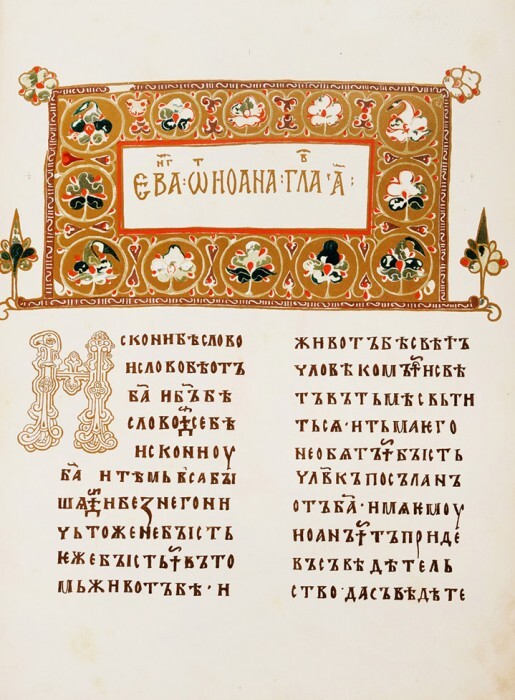 ЕВА҃Г · Ѿ ИОАНА · ГЛА҃В · А҃ ·
Искони бѣ слово
и слово бѣ отъ
ба҃ и б҃ъ бѣ
слово · се бѣ
искони оу
ба҃ и тѣмь вса бы
шѧ · и без него ни
чьтоже не бысть
ѥже бысть · въ то
мь животъ бѣ · и
животъ бѣ свѣтъ
чловѣкомъ · и свѣ
тъ въ тьмѣ свьти
тьсѧ · и тьма ѥго
не обѧтъ · бысть
чл҃вкъ посъланъ
отъ ба҃ · имѧ ѥмоу
иоанъ · тъ приде
въ съвѣдѣтель
ство · да съвѣдѣте